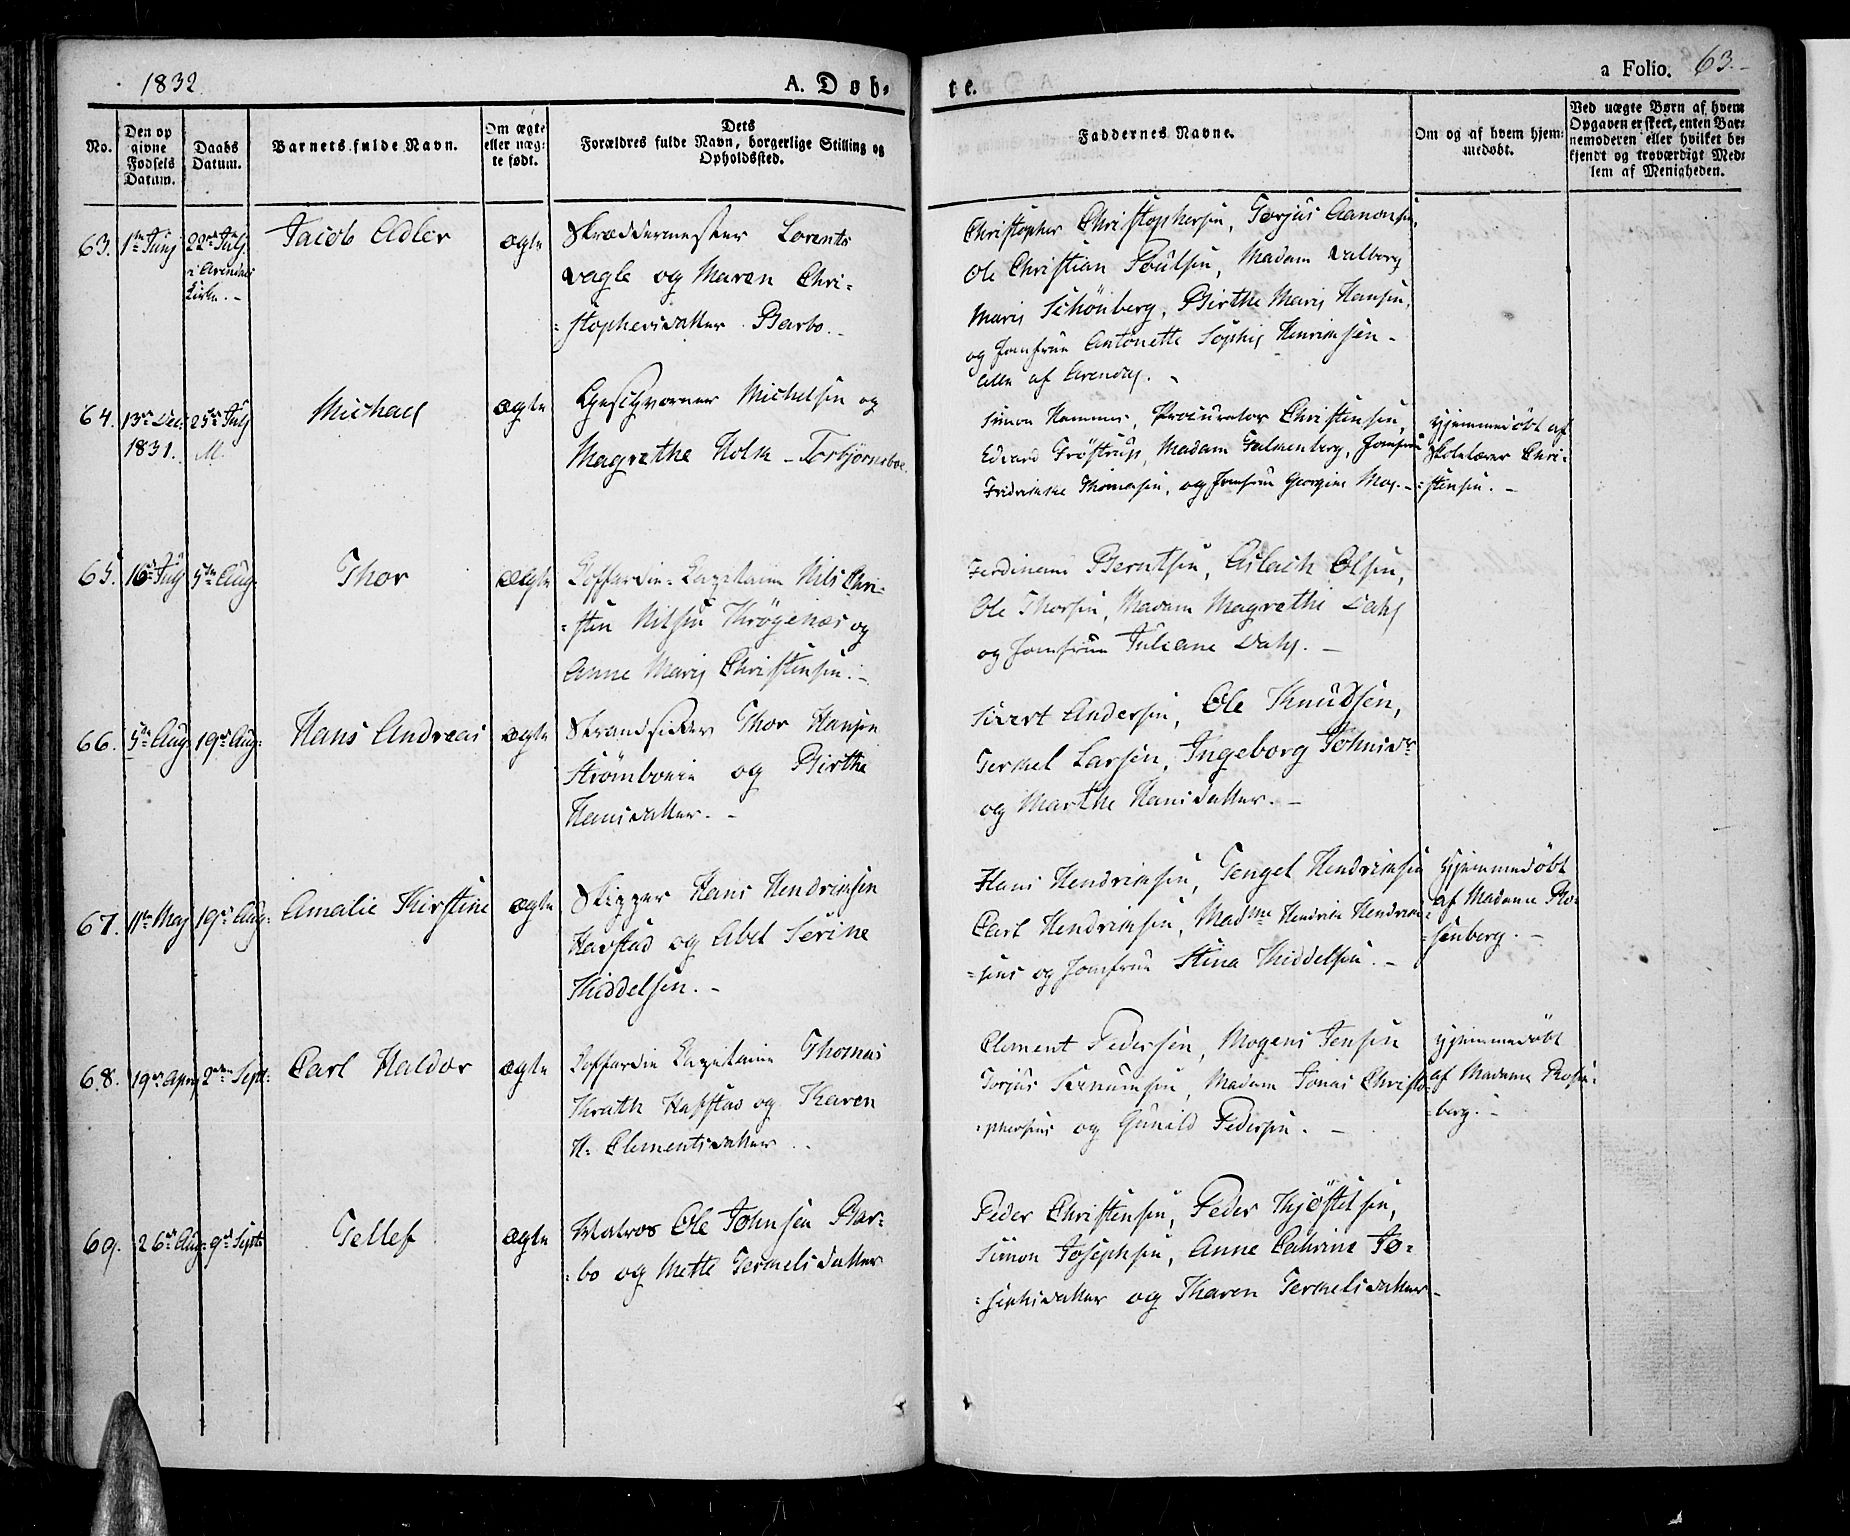 1832.
A. Døb-
te.
a Folio. 63.-
No.
Den op
givne
Fødsels
Datum.
Daabs
Datum.
Barnets fulde Navn.
Om ægte
eller uæg-
te født.
Dets
Forældres fulde Navn, borgerlige Stilling og
Opholdssted.
Faddernes Navne.
Om og af hvem hjem-
medøbt.
Ved uægte Børn af hvem
Opgaven er skeet, enten Bar-
nemoderen eller hvilket be-
kjendt og troværdigt Med-
lem af Menigheden.
63.
1ste Junj
22de Julj
i Arendals
Kirke.-
Jacob Adler
ægte
Skræddermester Lorents
Vagle og Maren Chri-
=stophersdatter Barbo.-
Christopher Christophersen, Torjus Aanonsen,
Ole Christian Poulsen, Madam Valborg
Marij Schönberg, Birthe Marij Hansen,
og Jomfrue Antonette Sophij Henriksen -
alle af Arendal. -
64.
13de Dec.
1831.
25de Julj
M.
Michael
ægte
Michelsen og
Magrethe Holm - Torbjørnsboe.
Simon Hammer, Procurator Christensen,
Edvard Trøstrup, Madam Falkenberg, Jomfrue
Fredrikke Thomesen, og Jomfrue Georgine Moe. -
Hjemmedøbt af
Skolelærer Chri-
=stensen. -
65.
16de Julj
5te Aug.
Thor
ægte
Koffardie-Kapitain Nils Chri-
=sten Nilsen Krøgenæs og
Anne Marij Christensen.-
Ferdinand Berntsen, Aslach Olsen,
Ole Thorsen, Madam Magrethe Dahl
og Jomfrue Juliane Dahl. -
66.
5te Aug.
19de Aug:
Hans Andreas
ægte
Strandsidder Thor Hansen
Strømboeie og Birthe
Hansdatter. -
Sivert Andersen, Ole Knudsen,
Terkel Larsen, Ingeborg Johnsdr
og Marthe Hansdatter. -
67.
11te Maj
19de Aug:
Amalie Kirstine
ægte
Skipper Hans Hendriksen
Havstad og Abel Serine
Kiddelsen. -
Hans Hendriksen, Tengel Hendriksen
Carl Hendriksen, Madme Hendrik Hendrik-
=sens og Jomfrue Stina Kiddelsen. -
Hjemmedøbt
af Madame Ro-
=senberg. -
68.
19de April
2den Sept:
Carl Haldor
ægte
Koffardie Kapitaine Thomas
Knuth Hafstad og Karen
H. Clementsdatter. -
Clement Pedersen, Mogens Jensen
Torjus Madam Jonas Christo-
=phersens og Gunild Pedersen. -
Hjemmedøbt
af Madame Rosen-
=berg. -
69.
26de Aug:
9de Septb
Tellef
ægte
Matros Ole Johnsen Bar-
=bo og Mette Terkelsdatter
Peder Christensen, Peder Kjøstelsen,
Simon Josephsen, Anne Cathrine Jo-
=sephsdatter og Karen Terkelsdatter-